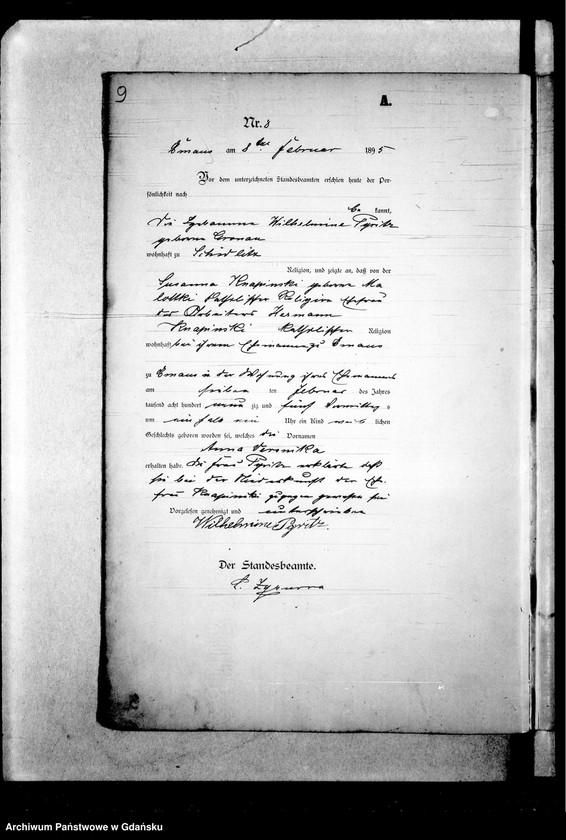 9
A.
Nr. 8
Emaus am 8ten Februar 1895
Vor dem unterzeichneten Standesbeamten erschien heute der Per-
sönlichkeit nach
be kannt,
die Hebamme Wilhelmine Pyritz
geborene
wohnhaft zu Schidlitz
Religion, und zeigte an, daß von der
Susanna Knapinski geborene Ma
lottki katholischer Religion Ehefrau
des Arbeiters Hermann
Knapinski katholischer Religion
wohnhaft bei ihrem Ehemanne zu Emaus
zu Emaus in der Wohnung ihres Ehemannes
am sieben ten Februar des Jahres
tausend acht hundert neun zig und fünf Vormittags
um ein halb ein Uhr ein Kind weib lichen
Geschlechts geboren worden sei, welches die Vornamen
Anna Veronika
erhalten habe. Die Frau Pyritz erklärte daß
sie bei der Niederkunft der Ehe
frau Knapinski zugegen gewesen sei
Vorgelesen, genehmigt und unterschrieben
Wilhelmine Pyritz.
Der Standesbeamte.
Archiwum Państwowe w Gdańsku